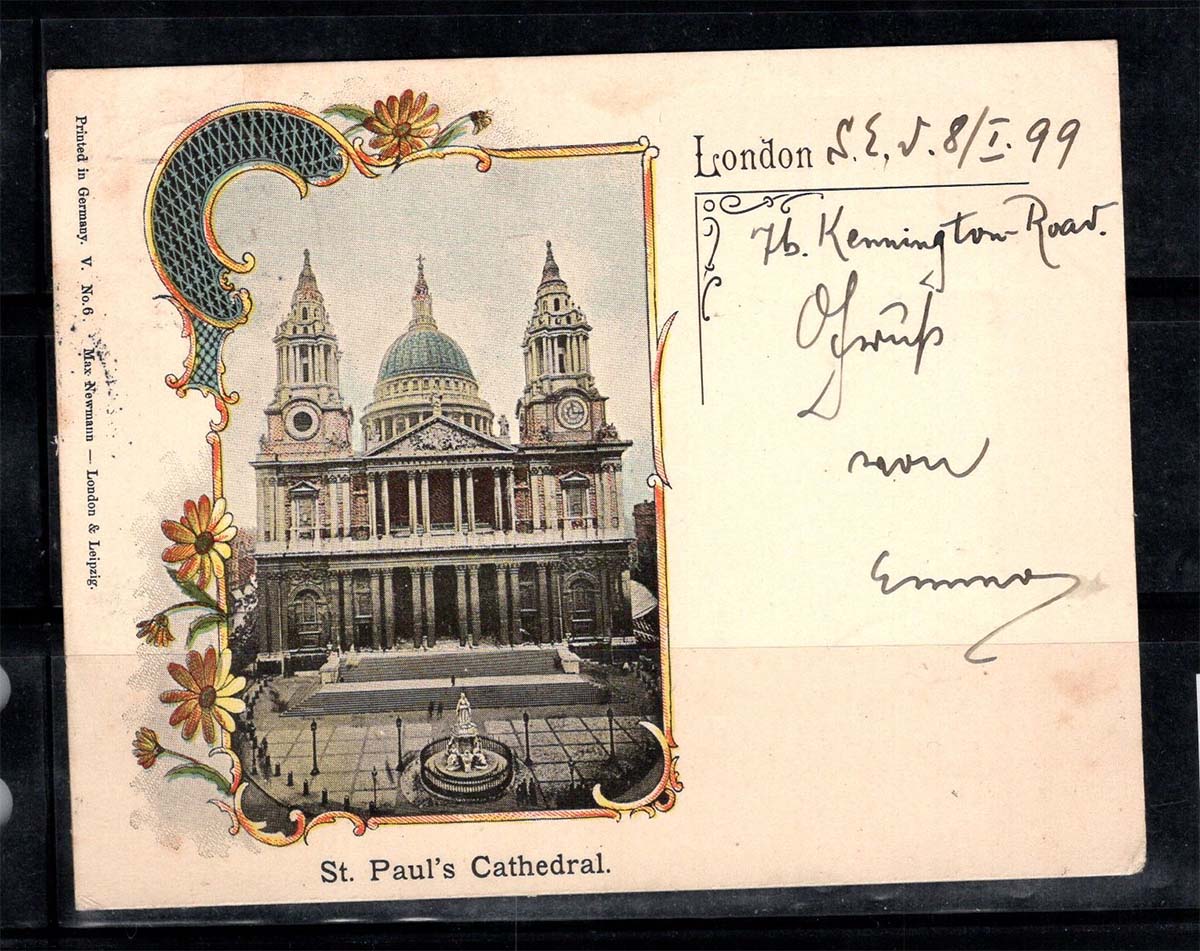 Printed in Germany. V. No. 6 Max Newmann — London & Leipzig.
London S.E., d. 8/I. 99
7b. Kennington-Road.
Gruß
von
Emma
St. Paul's Cathedral.